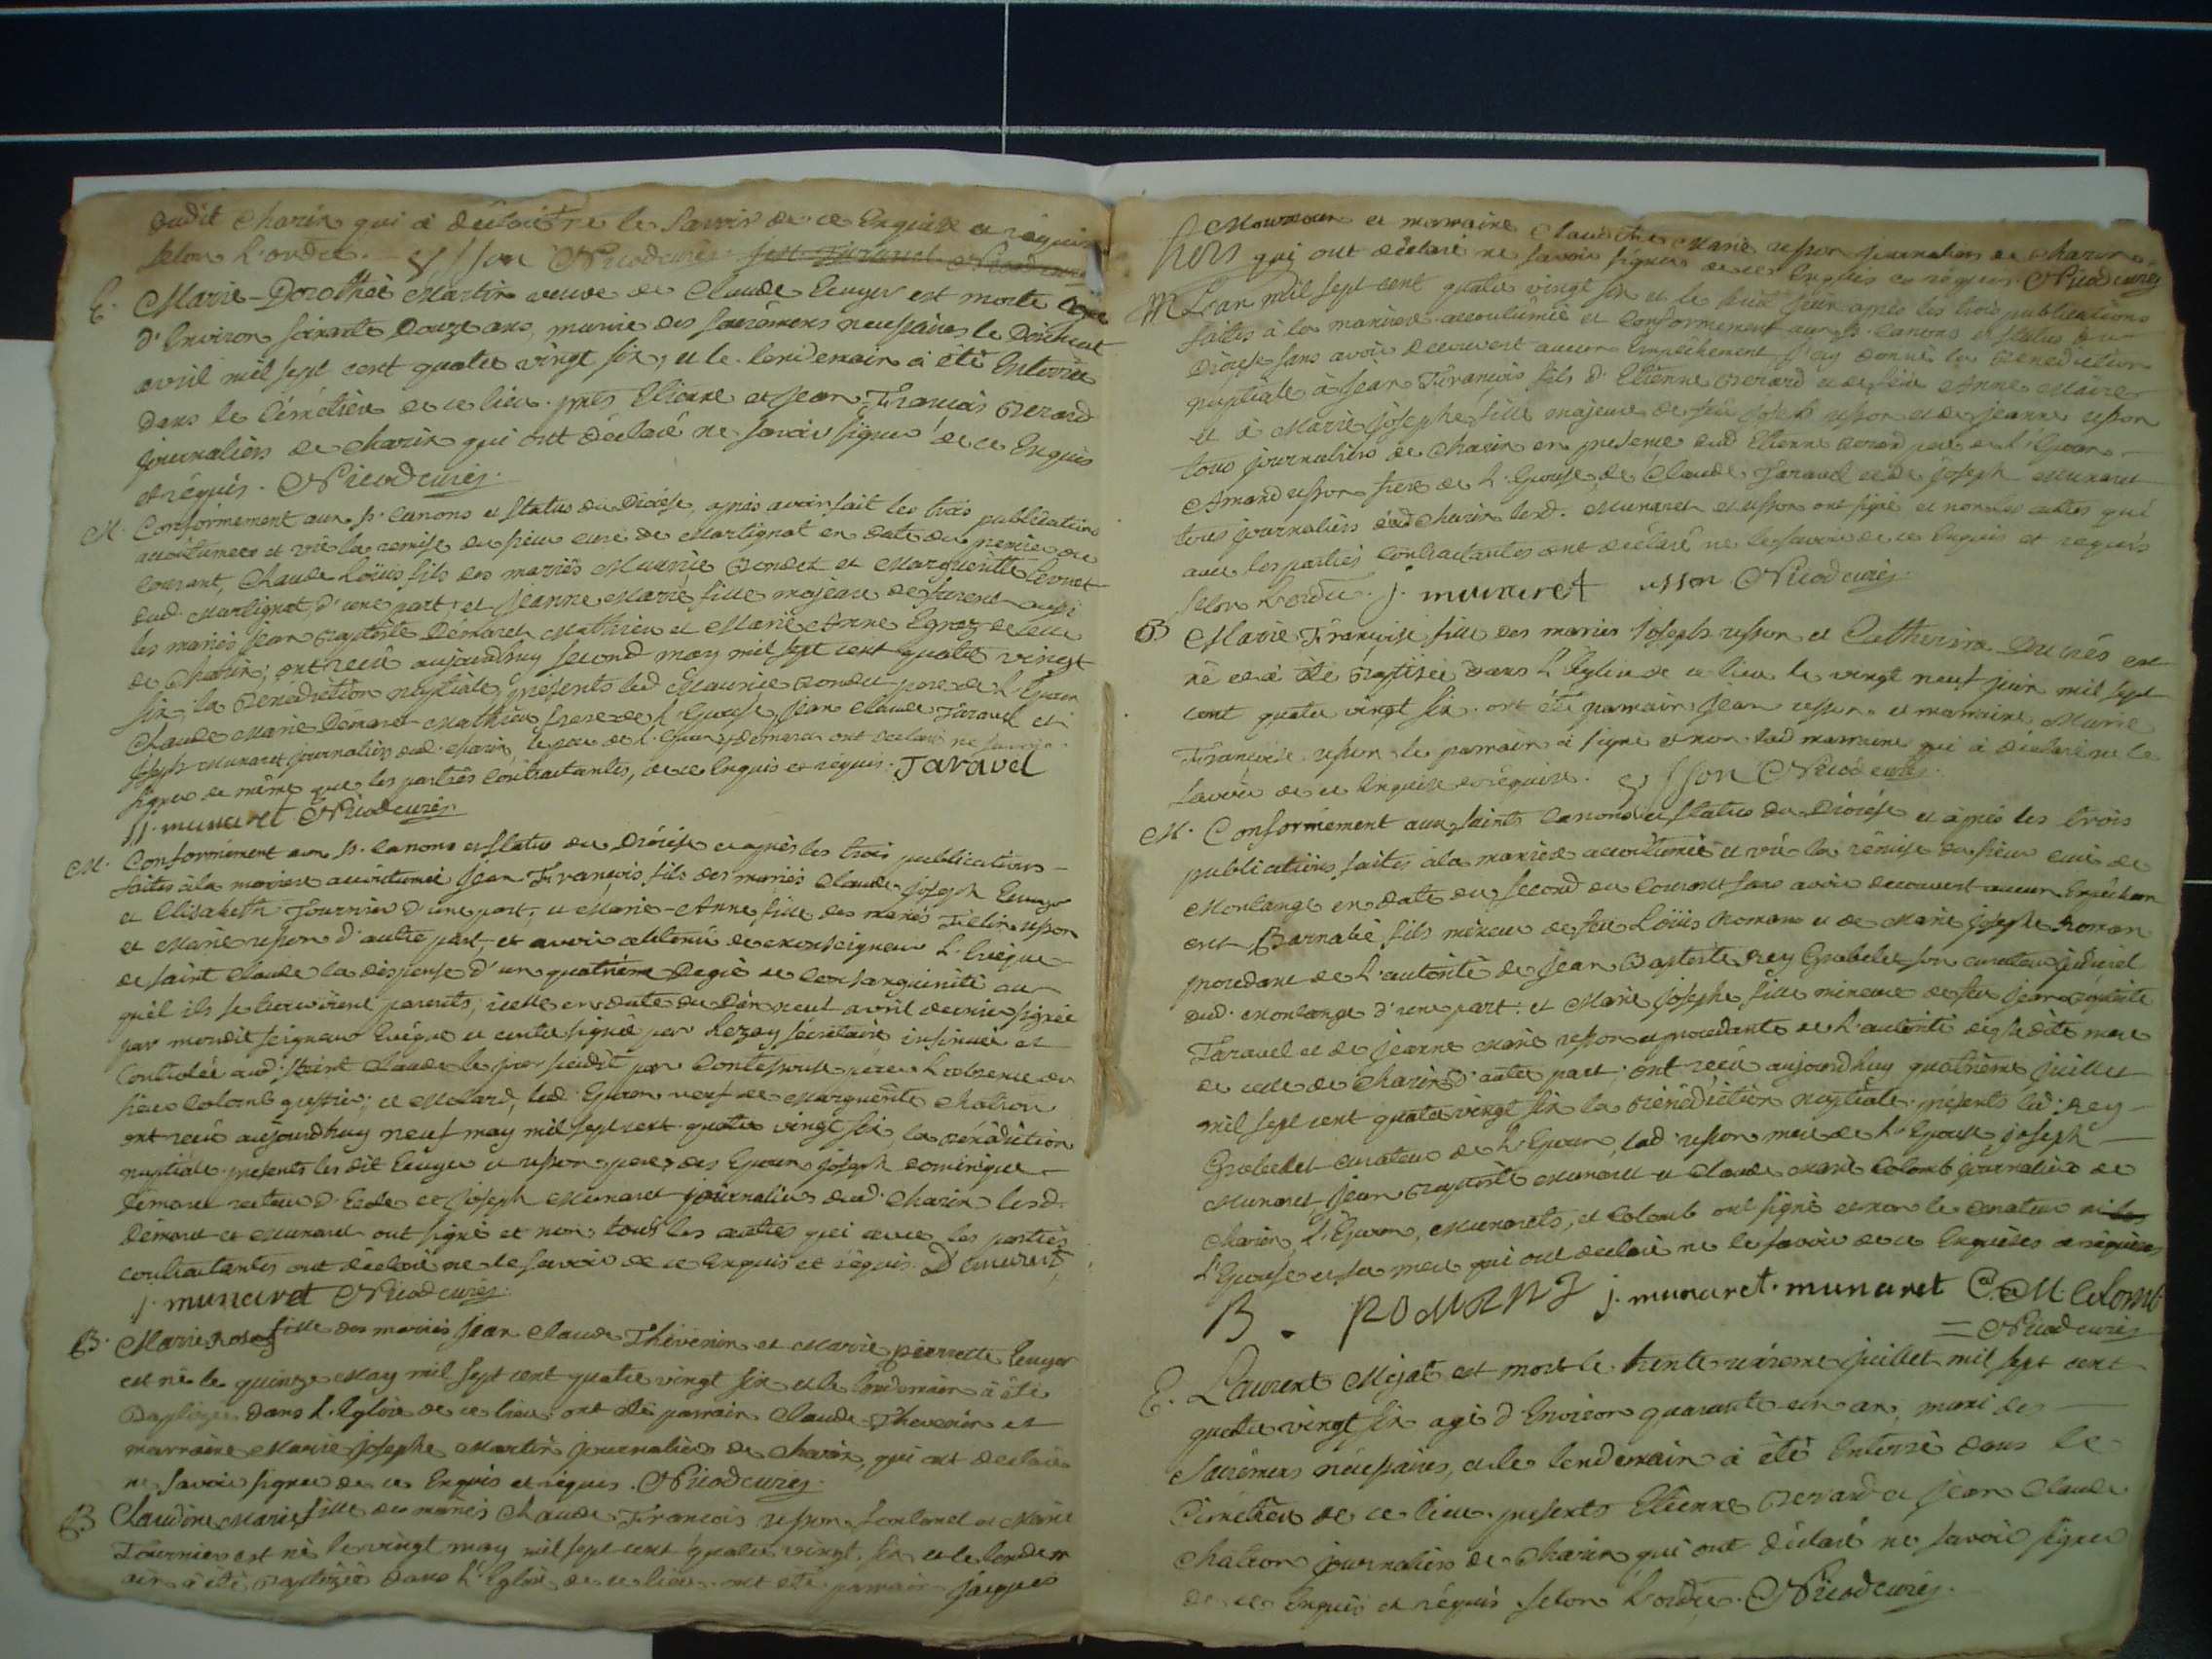 dudit Charix qui a déclaré ne le savoir de ce Enquise et requise
selon l'ordre. usson Nicod curé
E. Marie-Dorothée Martin veuve de Claude Leuger est morte
d'Environ soixante Douze ans, munie des sacrémens nécessaires le Dixhuit
avril mil sept cent quatre vingt six, et le lendemain à été Enterrée
dans le Cémétière de ce lieu. prés. Etienne et Jean-François Berard
journaliers de Charix qui ont déclaré ne savoir signer de ce Enquis
et réquis. Nicod curé.
M. Conformement aux S.ts Canons et statuts du Diocése, après avoir fait les trois publications
accoutumées et vu la remise du sieur curé de Martignat en date du premier du
Courant, Claude Loüis fils des mariés Maurice Bondet et Marguerite
dud. Martignat, d'une part; et Jeanne Marie fille majeure de
les mariés Jean Baptiste Démaret Mathieu et Marie Anne Egraz de celle
de Charix; ont reçu aujourdhuy second may mil sept cent quatre vingt
six, la Bénédiction nuptiale, présents led Maurice Bondet pere de l'Epoux
Claude Marie Démaret Mathieu frere de l'Epouse, Jean Claude Taravel et
Joseph Munaret journaliers dud. Charix, le pere de l'Epoux, Démaret ont déclaré ne savoir
signer de même que les parties Contractantes, de ce Enquis et réquis. Taravel
j. munaret Nicod curé.
M. Conformement aux S.ts Canons et statuts du Diocése et après les trois publications
faites à la maniere accoutumée Jean François fils des mariés Claude-Joseph Leuger
et Elisabeth Tournier d'une part, et Marie-Anne fille des mariés Felix usson
et Marie usson d'autre part, et avoir obtenû de Monseigneur L'Evêque
de saint Claude la dispense d'un quatriéme Degré de Consanguinité au
quel ils se trouvoient parents, icelle en date du Dix neuf avril dernier signée
par mondit seigneur Evêque et contre signée par Lezay sécrétaire insinuée et
Controlée aud. saint Claude le jour susdit par Contepouse pour l'absence du
sieur Colomb greffier; et Molard, led. Epoux veuf de Marguerite Chatron
ont reçu aujourdhuy neuf may mil sept cent quatre vingt six, la bénédiction
nuptiale presents les dit Leuger et usson peres des Epoux Joseph dominique
Démaret recteur d'Ecole et Joseph Munaret journalier dud. Charix lesd.
Démaret et Munaret ont signé et non tous les autres qui avec les parties
contractantes ont déclaré ne le savoir de ce Enquis et réquis. Démaret
j. munaret Nicod curé.
B. Marie Rose fille des mariés Jean Claude Thévenin et Marie pierrette Leuger
est né le quinze May mil sept cent quatre vingt six et le lendemain à été
Baptisée dans l'Eglise de ce lieu. ont été parrain Claude Thevenin et
marraine Marie Josephe Martin journaliers de Charix, qui ont déclaré
ne savoir signer de ce Enquis et réquis. Nicod curé.
B Claudine Marie fille des mariés Claude François usson et Marie
Tournier est né le vingt may mil sept cent quatre vingt six et le lendem
ain à été Baptisée dans l'Eglise de ce lieu. ont été parrain Jacques
et marraine Claudine Marie usson journaliers de Charix
qui ont déclaré ne savoir signer de ce Enquis et réquis. Nicod curé
M L'an mil sept cent quatre vingt six et le huit juin après les trois publications
faites à la maniere accoutumée et Conformement aux S.ts Canons et statuts du
Diocése sans avoir découvert aucun Empêchement j'ay donné la Bénédiction
nuptiale à Jean François fils d'Etienne Berard et de feüe Anne Maire
et à Marie Josephe fille majeure de feu Joseph usson et de Jeanne usson
tous journaliers de Charix en presence dud Etienne Berard pere de l'Epoux
Amand usson frere de l'Epouse, de Claude Taravel et de Joseph Munaret
tous journaliers dud Charix lesd. Munaret et usson ont signé et non les autres qui
avec les parties Contractantes ont déclaré ne le savoir de ce Enquis et requis
selon l'ordre. j. munaret usson Nicod curé.
B Marie Françoise fille des mariés Joseph usson et Catherine est
né et à été Baptisée dans l'Eglise de ce lieu le vingt neuf juin mil sept
cent quatre vingt six. ont été parrain Jean usson et marraine Marie
Françoise usson le parrain à signé et non lad marraine qui à déclaré ne le
savoir de ce Enquise et réquise. usson Nicod curé.
M. Conformément aux saints Canons et statuts du Diocése et après les trois
publications faites à la maniere accoutumée et vû la rémise du sieur curé de
Montange en date du second du Courant sans avoir découvert aucun Empêchem
ent Barnabé fils mineur de feu Loüis Roman et de Marie Josephe Roman
procedant de l'autorité de Jean Baptiste Rey Grobelet son curateur judiciel
dud. Montange d'une part. et Marie Josephe fille mineure de feu Jean Baptiste
Taravel et de Jeanne Marie usson procedante de l'autorité de sadite mere
de celle de Charix d'autre part; ont reçu aujourdhuy quatriéme juillet
mil sept cent quatre vingt six la Bénédiction nuptiale. présents led. Rey
Grobelet curateur de l'Epoux, lad. usson mere de l'Epouse Joseph
Munaret, Jean Baptiste Munaret et Claude Marie Colomb journaliers de
Charix, l'Epoux, Munarets, et Colomb ont signé et non le curateur ni
l'Epouse et sa mere qui ont déclaré ne le savoir de ce Enquises et réquises
B. ROMANT j. munaret. munaret C. M. Colomb
= Nicod curé
E. Laurent Mijat est mort le trente unieme juillet mil sept cent
quatre vingt six agé d'Environ quarante un an, muni des
Sacrémens nécessaires, et le lendemain à été Enterré dans le
Cimétiere de ce lieu. presents Etienne Berard et Jean Claude
Chatron journaliers de Charix qui ont déclaré ne savoir signer
de ce Enquis et réquis selon l'ordre. Nicod curé.